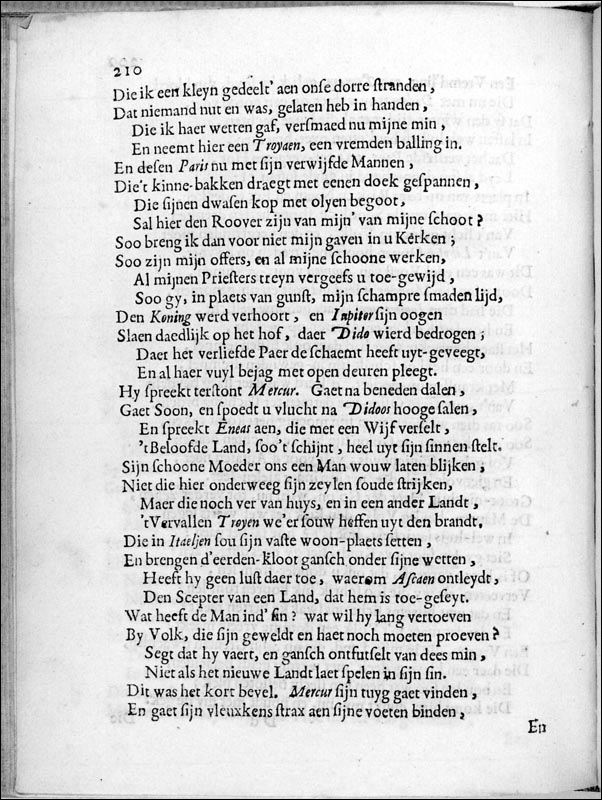 210
Die ik een kleyn gedeelt' aen onse dorre stranden,
Dat niemand nut en was, gelaten heb in handen,
Die ik haer wetten gaf, versmaed nu mijne min,
En neemt hier een Troyaen, een vremden balling in.
En desen Paris nu met sijn verwijfde Mannen,
Die't kinne-bakken draegt met eenen doek gespannen,
Die sijnen dwasen kop met olyen begoot,
Sal hier den Roover zijn van mijn' van mijne schoot?
Soo breng ik dan voor niet mijn gaven in u Kerken;
Soo zijn mijn offers, en al mijne schoone werken,
Al mijnen Priesters treyn vergeefs u toe-gewijd,
Soo gy, in plaets van gunst, mijn schampre smaden lijd,
Den Koning werd verhoort, en Iupiter sijn oogen
Slaen daedlijk op het hof, daer Dido wierd bedrogen;
Daer het verliefde Paer de schaemt heeft uyt-geveegt,
En al haer vuyl bejag met open deuren pleegt.
Hy spreekt terstont Mercur. Gaet na beneden dalen,
Gaet Soon, en spoedt u vlucht na Didoos hooge salen,
En spreekt Eneas aen, die met een Wijf verselt,
't Beloofde Land, soo't schijnt, heel uyt sijn sinnen stelt.
Sijn schoone Moeder ons een Man wouw laten blijken,
Niet die hier onderweeg sijn zeylen soude strijken,
Maer die noch ver van huys, en in een ander Landt,
't Vervallen Troyen we'er souw heffen uyt den brandt.
Die in Itaeljen sou sijn vaste woon-plaets setten,
En brengen d'eerden-kloot gansch onder sijne wetten,
Heeft hy geen lust daer toe, waerom Ascaen ontleydt,
Den Scepter van een Land, dat hem is toe-geseyt.
Wat heeft de Man ind' sin? wat wil hy lang vertoeven
By Volk, die sijn geweldt en haet noch moeten proeven?
Segt dat hy vaert, en gansch ontfutselt van dees min,
Niet als het nieuwe Landt laet spelen in sijn sin.
Dit was het kort bevel. Mercur sijn tuyg gaet vinden,
En gaet sijn vleuxkens strax aen sijne voeten binden,
En